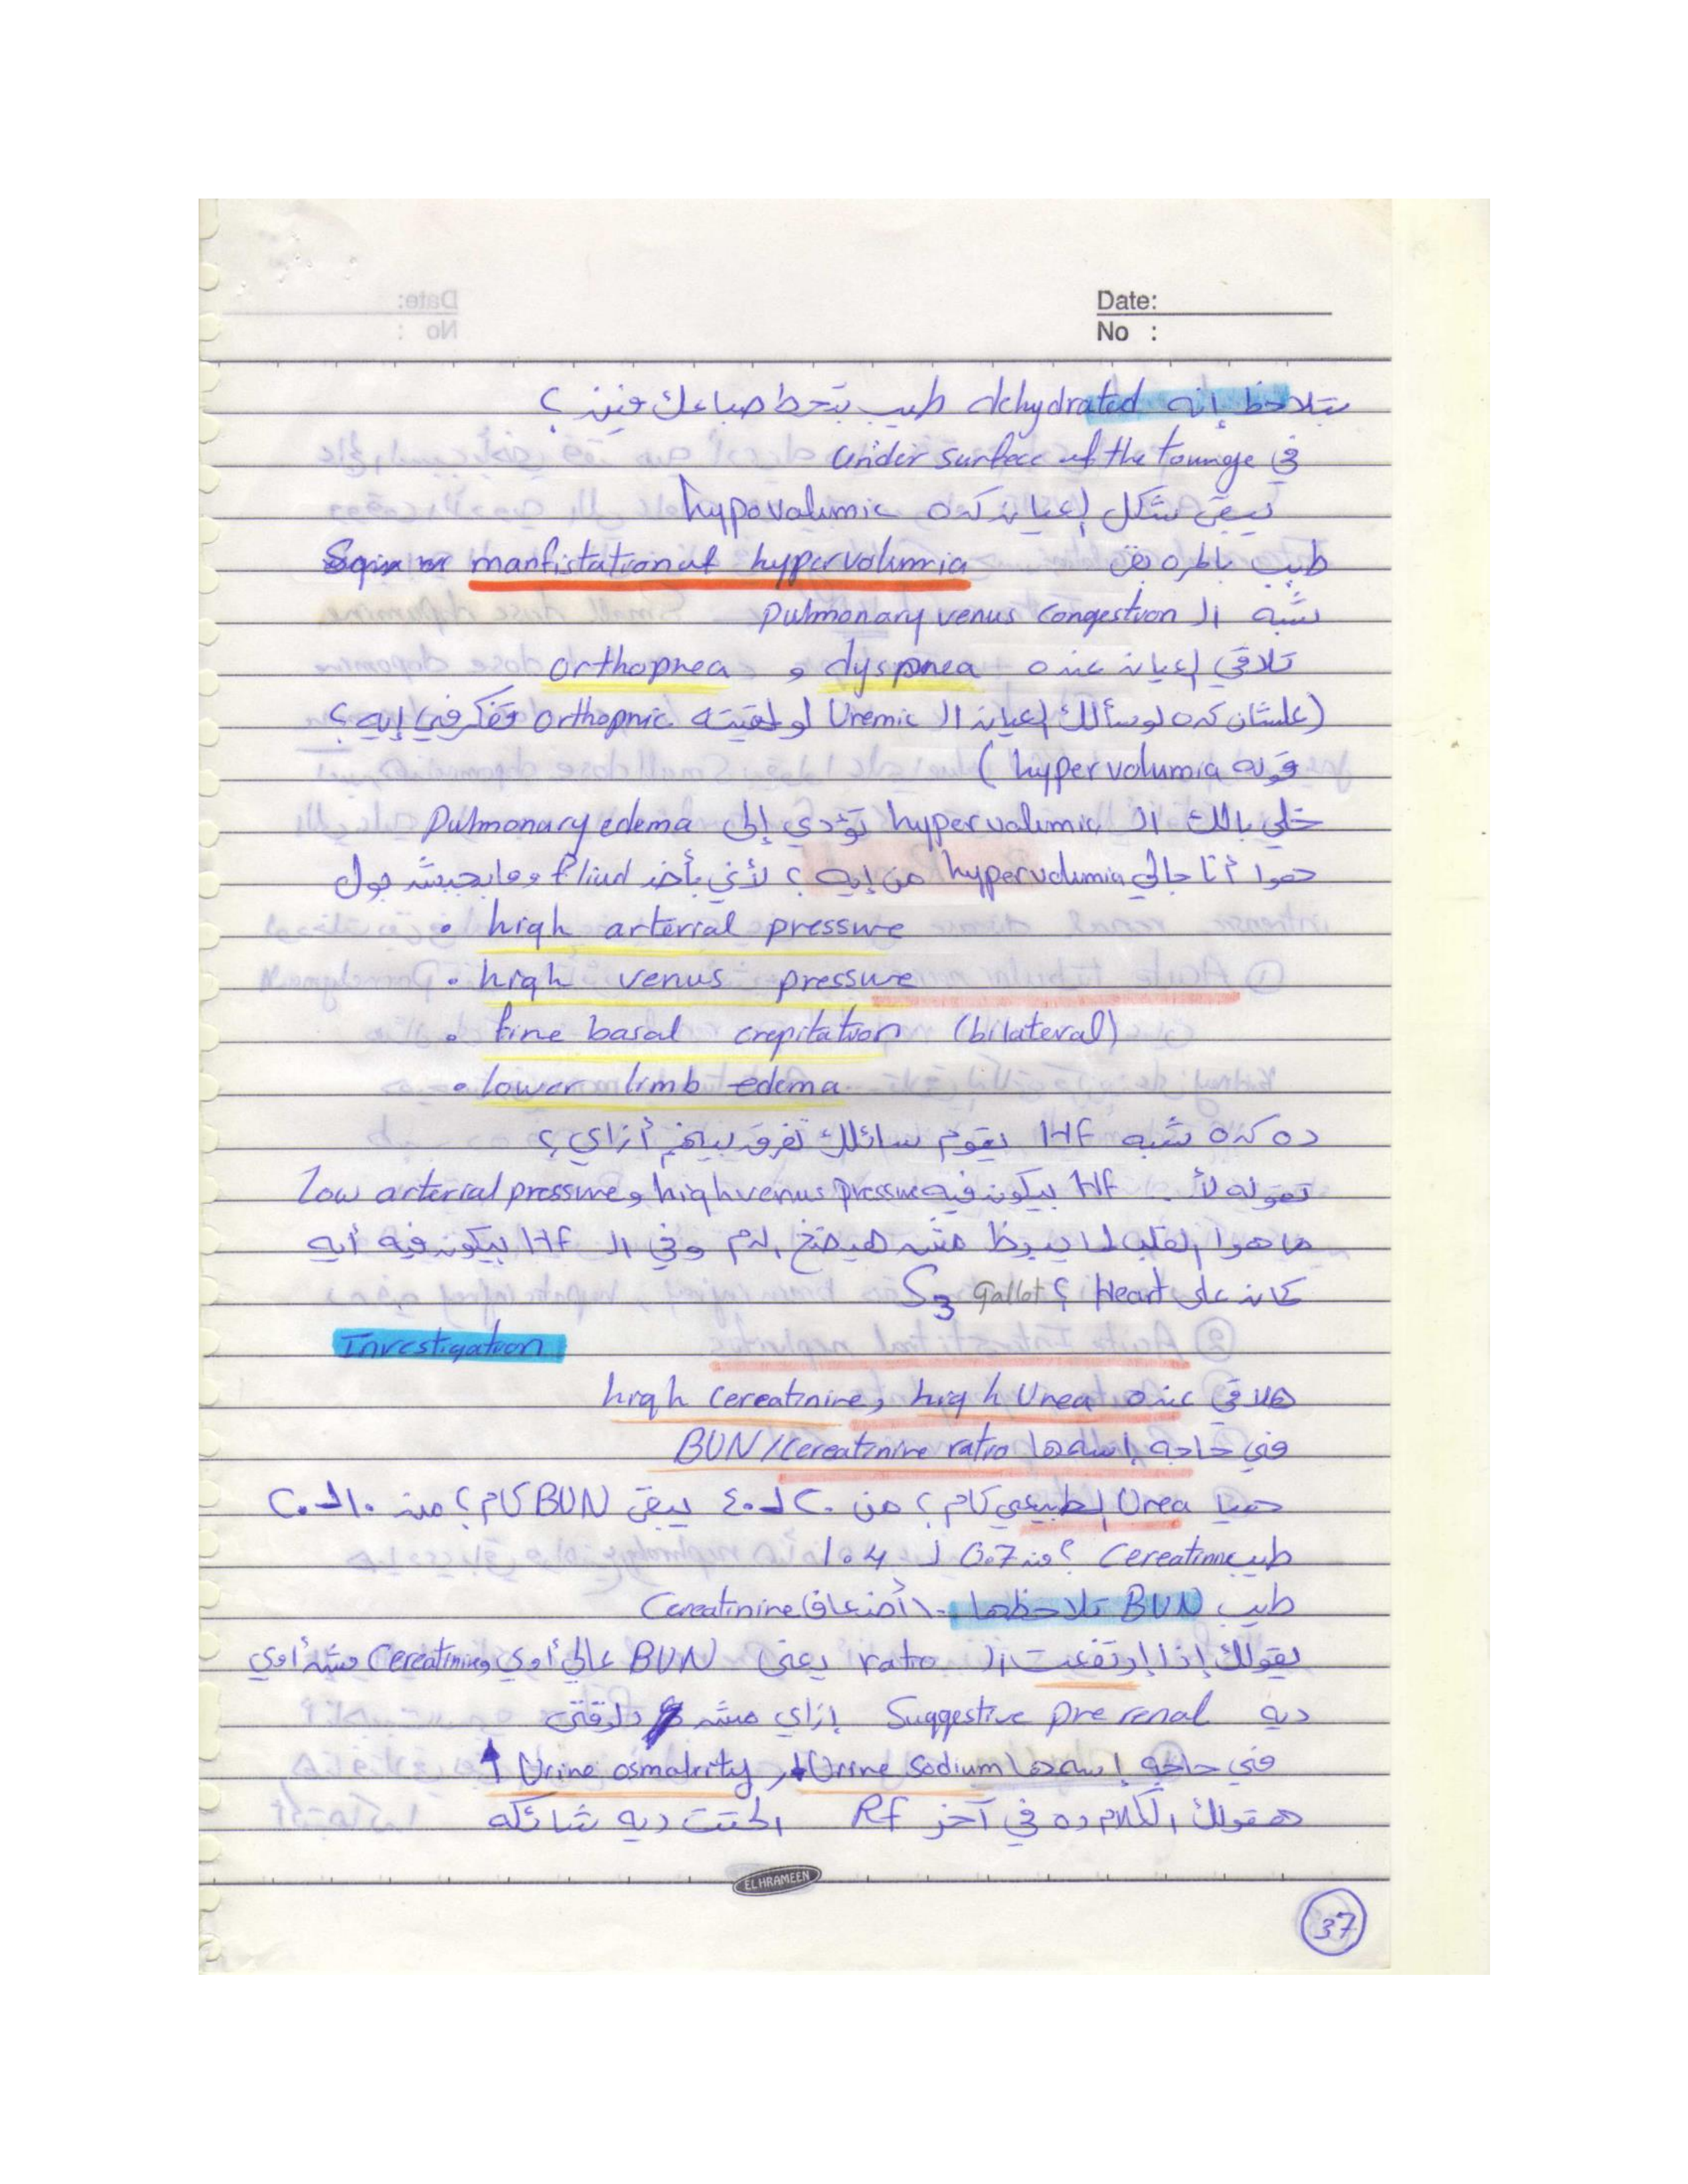 Date:
No :
بتلاحظ إنه dehydrated طيب بتحط صباعك فين؟
في under surface of the tounge
يبقى شكل إعيان كده hypovolumic
طيب بالمره بقى manfistation of hypervolumia
شبه الـ pulmonary venus congestion
تلاقي إعيان عنده dyspnea و orthopnea
(علشان كده لو سألك إعيان الـ Uremic لو لقيته orthopnic تفكر في إيه؟
قوله hypervolumia)
خلي بالك الـ hypervolumic تؤدي إلى Pulmonary edema
هوا أنا جالي hypervolumia من إيه؟ لأني بأخد fliud ومابجيبش بول
• high arterial pressure
• high venus pressure
• fine basal crepitation (bilateral)
• lower limb edema
ده كده شبه HF يقوم سائلك تفرق بينهم أزاي؟
تقوله لأ .. HF بيكون فيه high venus pressure و low arterial pressure
ما هوا القلب لما يبوظ مش هيضخ الدم وفي الـ HF بيكون فيه أيه
كمان على Heart؟ S3 Gallot
Investigation
هلاقي عنده high Urea و high Cereatinine
في حاجه إسمها BUN/Cereatinine ratio
هيا Urea الطبيعي كام؟ من ٢٠ لـ ٤٠ يبقى BUN كام؟ من ١٠ لـ ٢٠
طيب Cereatinne؟ من 0.7 لـ 1.4
طيب BUN تلاحظها ١٠ أضعاف Cereatinine
يقولك إذا إرتفعت الـ ratio يعني BUN عالي أوي و Cereatinine مش أوي
ديه Suggestive pre renal إزاي مش دلوقتى
في حاجه إسمها Urine Sodium ↓ و Urine osmolrity ↑
هقولك الكلام ده في آخر RF الحتت ديه شائكه
EL HRAMEEN
37